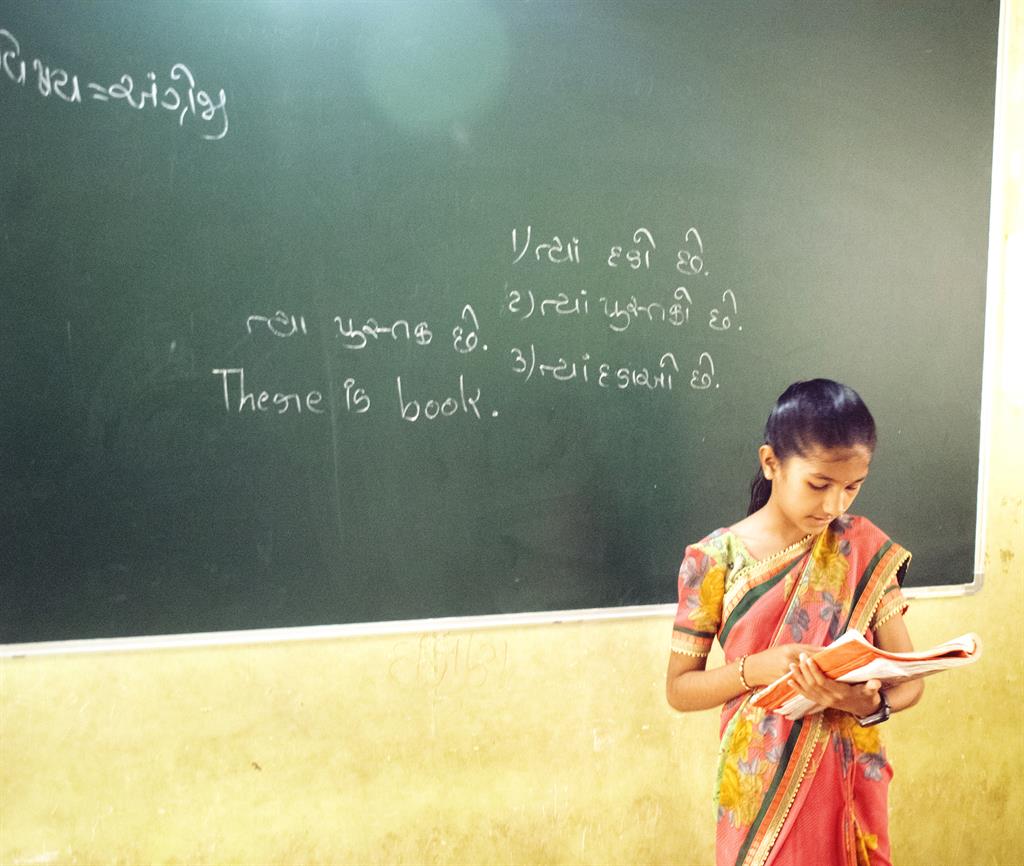 વિષય = અંગ્રેજી
1) ત્યાં દડો છે.
૨) ત્યાં પુસ્તકો છે.
૩) ત્યાં દડાઓ છે.
ત્યા પુસ્તક છે.
There is book.